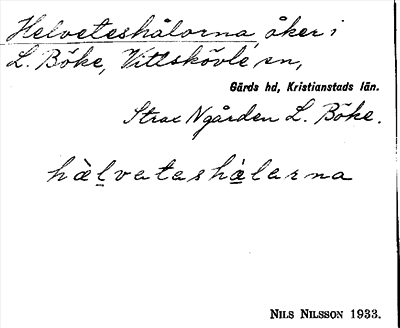 Helveteshålorna, åker i
L. Böke, Vittskövle sn,
Gärds hd, Kristianstads län.
Strax N gården L. Böke.
hὰl̲vatashὰ̲larna
NILS NILSSON 1933.